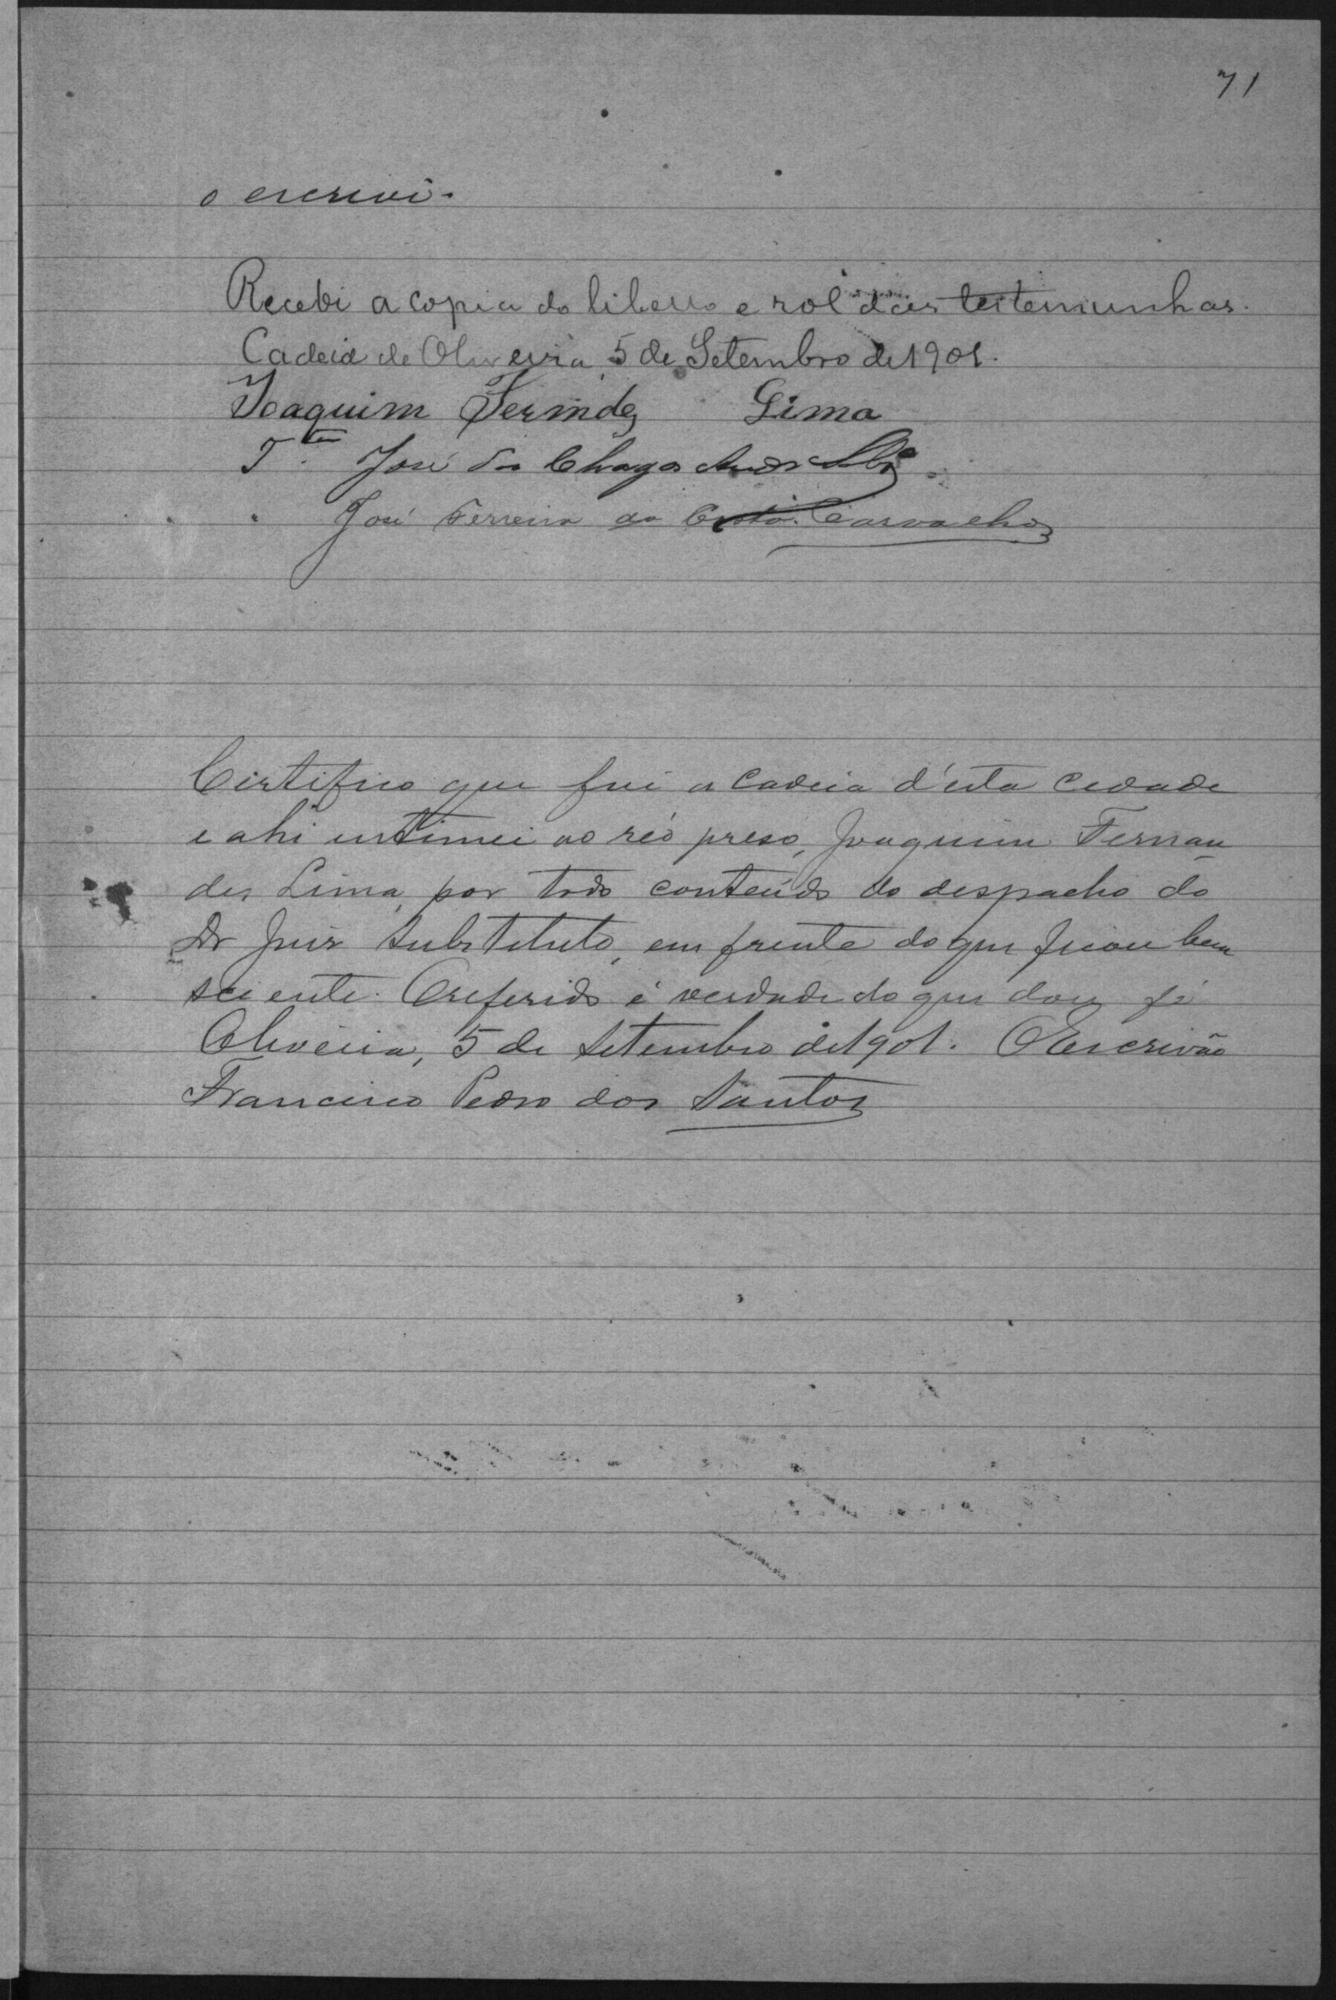 71
o escrevi.
Recebi a copia do libello e rol das testemunhas.
Cadeia de Oliveira 5 de Setembro de 1901.
Joaquim Fernides Lima
Tas. José das Chagas Andr
José Ferreira da Costa Carvalho
Certifico que fui a cadeia d'esta cidade
e ahi intimei ao réo preso, Joaquim Fernan
des Lima, por todo conteúdo do despacho do
Dr Juiz Substituto, em frente do que ficou bem
sciente. O referido é verdade do que dou fé
Oliveira, 5 de Setembro de 1901. O Escrivão
Francisco Pedro dos Santos